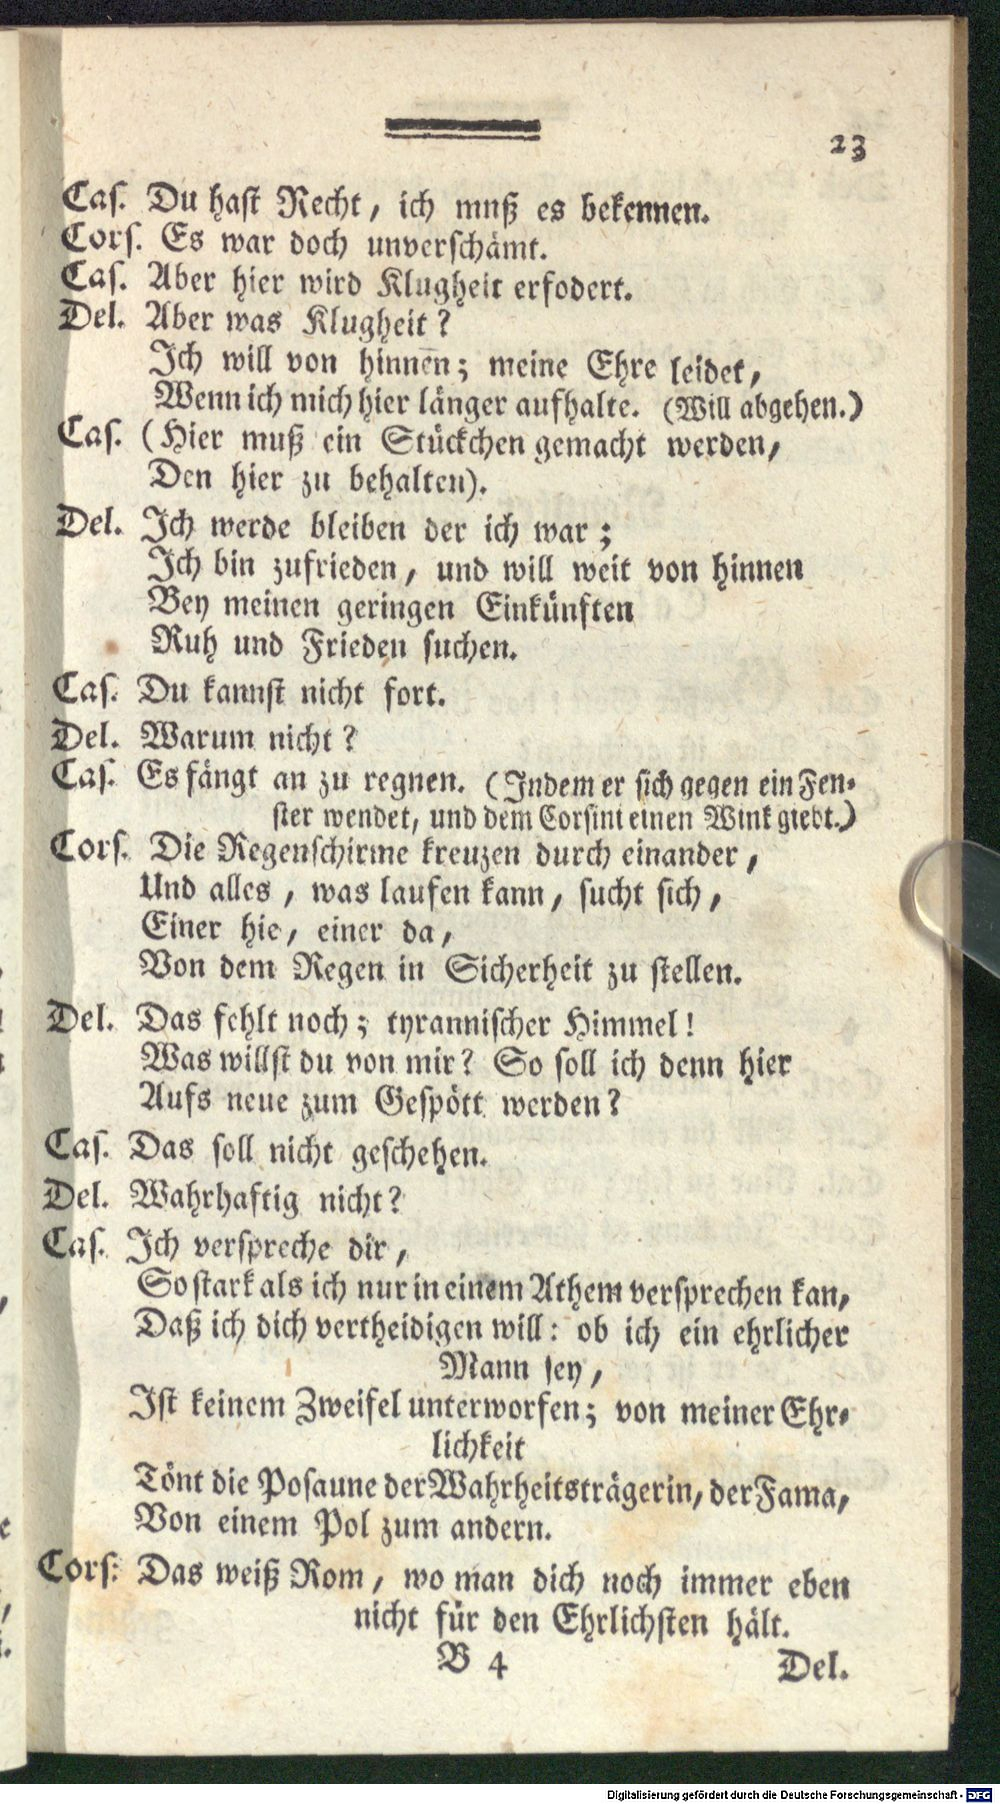 23
Cas. Du hast Recht, ich muß es bekennen.
Cors. Es war doch unverschämt.
Cas. Aber hier wird Klugheit erfodert.
Del. Aber was Klugheit?
Ich will von hinnen; meine Ehre leidet,
Wenn ich mich hier länger aufhalte. (Will abgehen.)
Cas. (Hier muß ein Stückchen gemacht werden,
Den hier zu behalten).
Del. Ich werde bleiben der ich war;
Ich bin zufrieden, und will weit von hinnen
Bey meinen geringen Einkünften
Ruh und Frieden suchen.
Cas. Du kannst nicht fort.
Del. Warum nicht?
Cas. Es fängt an zu regnen. (Indem er sich gegen ein Fen-
ster wendet, und dem Corsini einen Wink giebt.)
Cors. Die Regenschirme kreuzen durch einander,
Und alles, was laufen kann, sucht sich,
Einer hie, einer da,
Von dem Regen in Sicherheit zu stellen.
Del. Das fehlt noch; tyrannischer Himmel!
Was willst du von mir? So soll ich denn hier
Aufs neue zum Gespött werden?
Cas. Das soll nicht geschehen.
Del. Wahrhaftig nicht?
Cas. Ich verspreche dir,
So stark als ich nur in einem Athem versprechen kan,
Daß ich dich vertheidigen will: ob ich ein ehrlicher
Mann sey,
Ist keinem Zweifel unterworfen; von meiner Ehr-
lichkeit
Tönt die Posaune der Wahrheitsträgerin, der Fama,
Von einem Pol zum andern.
Cors. Das weiß Rom, wo man dich noch immer eben
nicht für den Ehrlichsten hält.
B 4 Del.
Digitalisierung gefördert durch die Deutsche Forschungsgemeinschaft - DFG